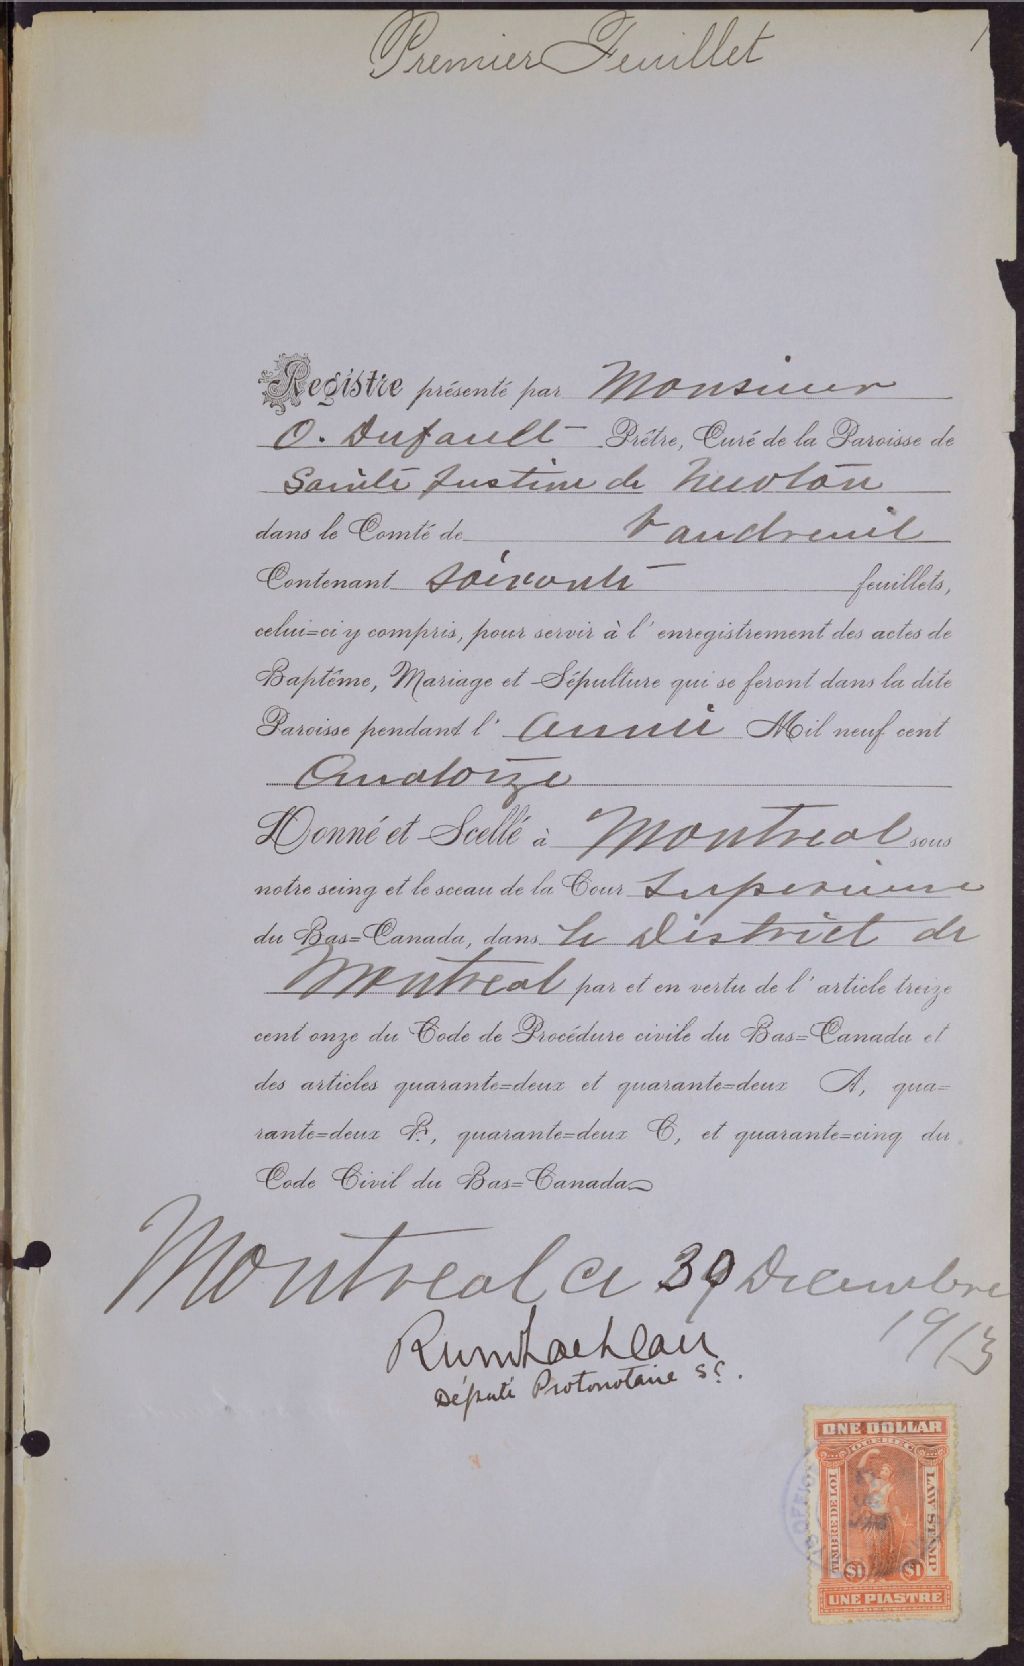 Premier Feuillet
1
Registre présenté par Monsieur
O. Dufault Prêtre, Curé de la Paroisse de
Sainte Justine de Newton
dans le Comté de Vaudreuil
Contenant soixante feuillets,
celui=ci y compris, pour servir à l'enregistrement des actes de
Baptême, Mariage et Sépulture qui se feront dans la dite
Paroisse pendant l'année Mil neuf cent
Quatorze
Donné et Scellé à Montreal sous
notre seing et le sceau de la Cour Superieure
du Bas=Canada, dans le District de
Montreal par et en vertu de l'article treize
cent onze du Code de Procédure civile du Bas=Canada et
des articles quarante=deux et quarante=deux A, qua=
rante=deux B, quarante=deux C, et quarante=cinq du
Code Civil du Bas=Canada
Montreal ce 30 Decembre
1913
Député Protonotaire S.C.
ONE DOLLAR
QUEBEC
TIMBRE DE LOI
LAW STAMP
$1 $1
UNE PIASTRE